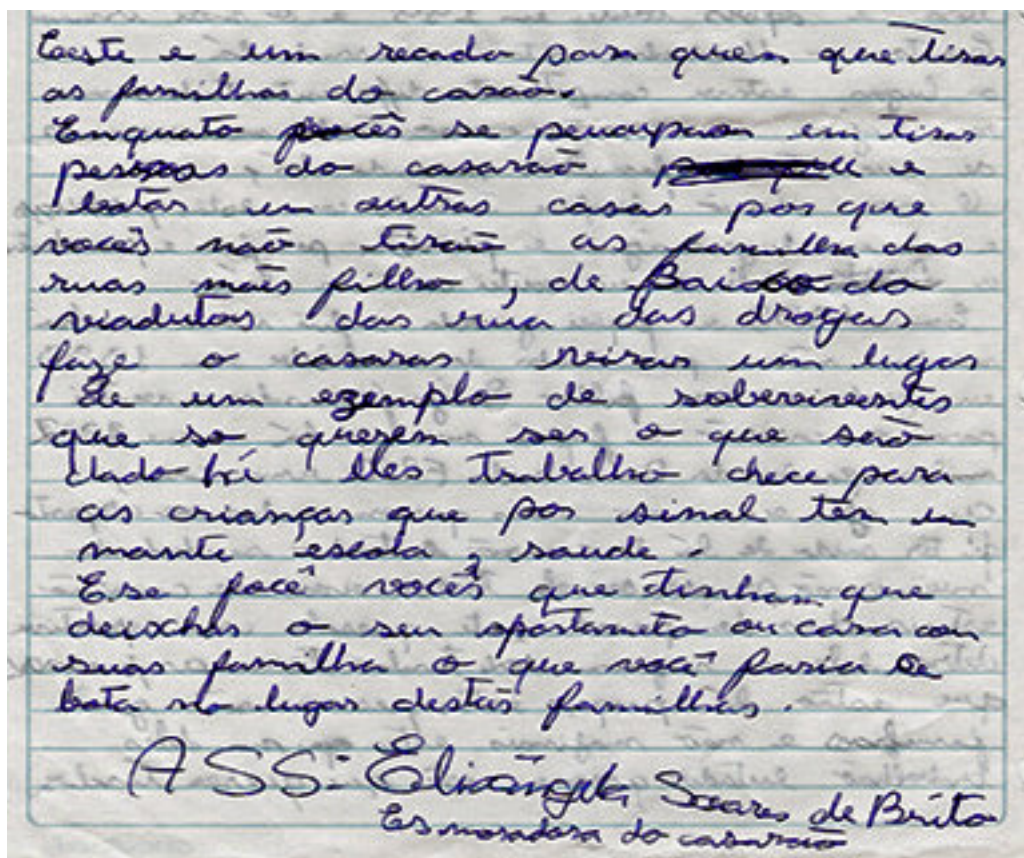 Eeste e um recado para quem que tirar
as familhas do casão.
Enquato vocês se peucupam em tirar
pessoas do casarão e
botar em outras casas por que
vocês não tirão as familha das
ruas mães filho, de Baixo do
viadutos das rua das drogas
faze o casaras reiras um lugar
de um ezemplo de sobereviventes
que so querem ser o que serà
dado há lles trabalho chece para
as crianças que por sinal tem um
mante escola, saude.
E se focê vocês que tinham que
deixchar o seu apartameto ou casa com
suas familha o que você faria se
bota no lugar destás familhas.
ASS: Eliângela Soares de Brito
Es moradora do casarão